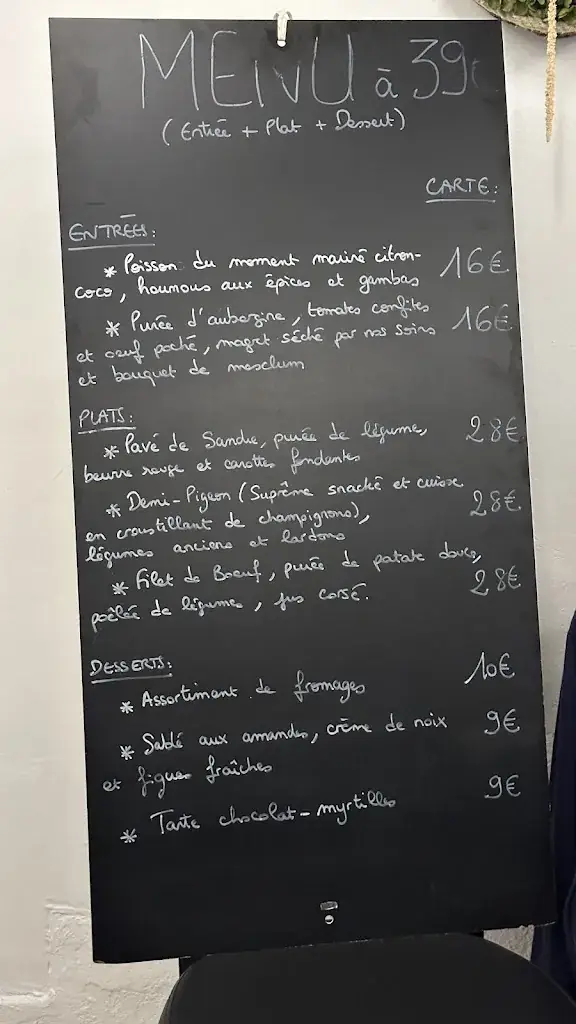 MENU à 39€
(Entrée + Plat + Dessert)
CARTE:
ENTRÉES:
* Poisson du moment mariné citron- 16€
coco, houmous aux épices et gambas
* Purée d'aubergine, tomates confites 16€
et oeuf poché, magret séché par nos soins
et bouquet de mesclum
PLATS:
* Pavé de Sandre, purée de légume, 28€
beurre rouge et carottes fondantes
* Demi-Pigeon (Suprême snacké et cuisse 28€
en croustillant de champignons),
légumes anciens et lardons
* Filet de Boeuf, purée de patate douce, 28€
poêlée de légumes, jus corsé.
DESSERTS:
* Assortiment de fromages 10€
* Sablé aux amandes, crème de noix 9€
et figues fraîches
* Tarte chocolat-myrtilles 9€